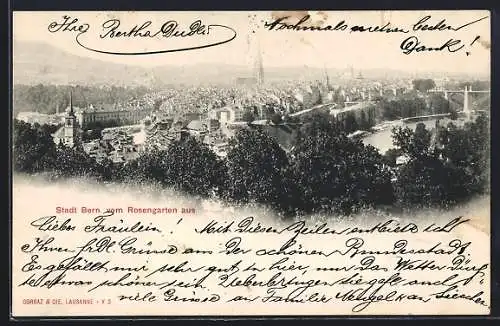 Ihre Bertha Dudli
Nochmals meinen besten
Dank!
Stadt Bern vom Rosengarten aus
Liebes Fräulein! Mit Diesen Zeilen entbiete ich
Ihnen frdl. Grüsse aus Der schönen Bundesstadt.
Es gefällt mir sehr gut in hier, nur Das Wetter Dürf
te etwas schöner sein. Ueberbringen sie gefl. auch
viele Grüsse an Familie
CORBAZ & CIE, LAUSANNE - V 3